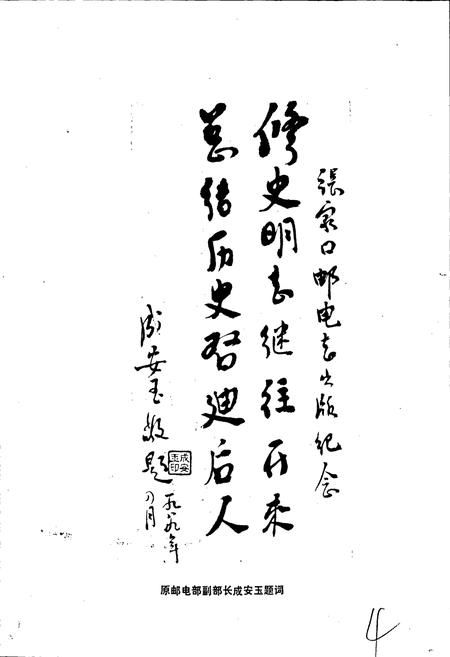 張家口邮电志出版纪念
修史明志继往开来
总结历史启迪后人
成安玉敬题
一九八九年八月
成安玉印
原邮电部副部长成安玉题词
4